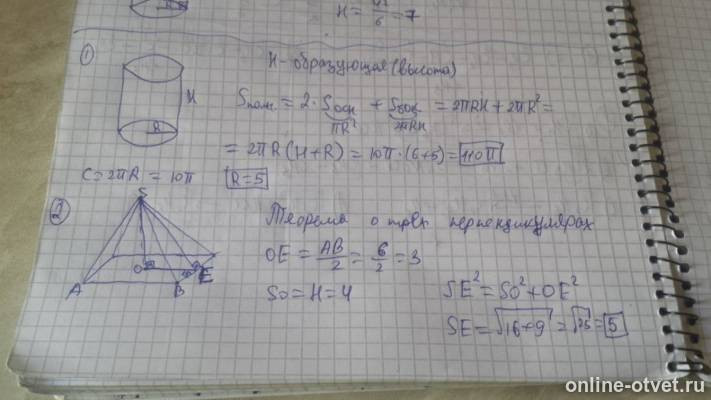 H = 42/6 = 7
①
H - образующая (высота)
H
R
Sполн = 2 · Sосн + Sбок = 2πRH + 2πR² =
πR² 2πRH
= 2πR (H + R) = 10π · (6+5) = 110π
C = 2πR = 10π R = 5
②
S
Теорема о трёх перпендикулярах
OE = AB/2 = 6/2 = 3
O E
A B
SO = H = 4 SE² = SO² + OE²
SE = √16+9 = √25 = 5
online-otvet.ru